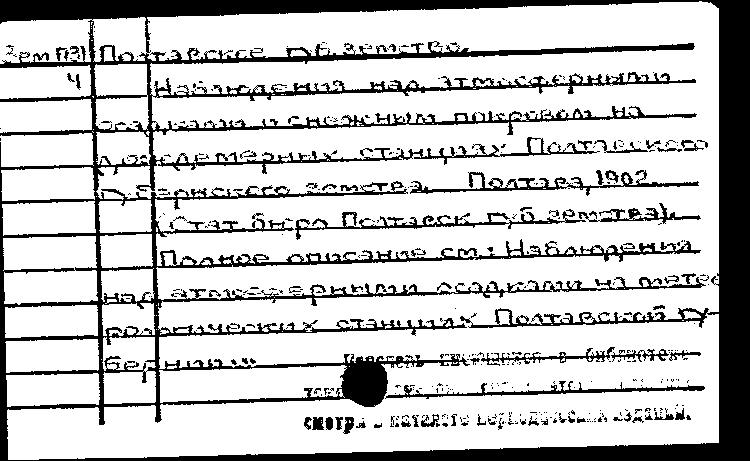 Зем П31 Полтавское губ. земство.
4 Наблюдения над атмосферными
осадками и снежным покровом на
дождемерных станциях Полтавского
губернского земства. Полтава, 1902.
(Стат. бюро Полтавск. губ. земства).
Полное описание см.: Наблюдения
над атмосферными осадками на метео
рологических станциях Полтавской гу-
бернии...
в библиотеке
смотри в каталоге периодических изданий.